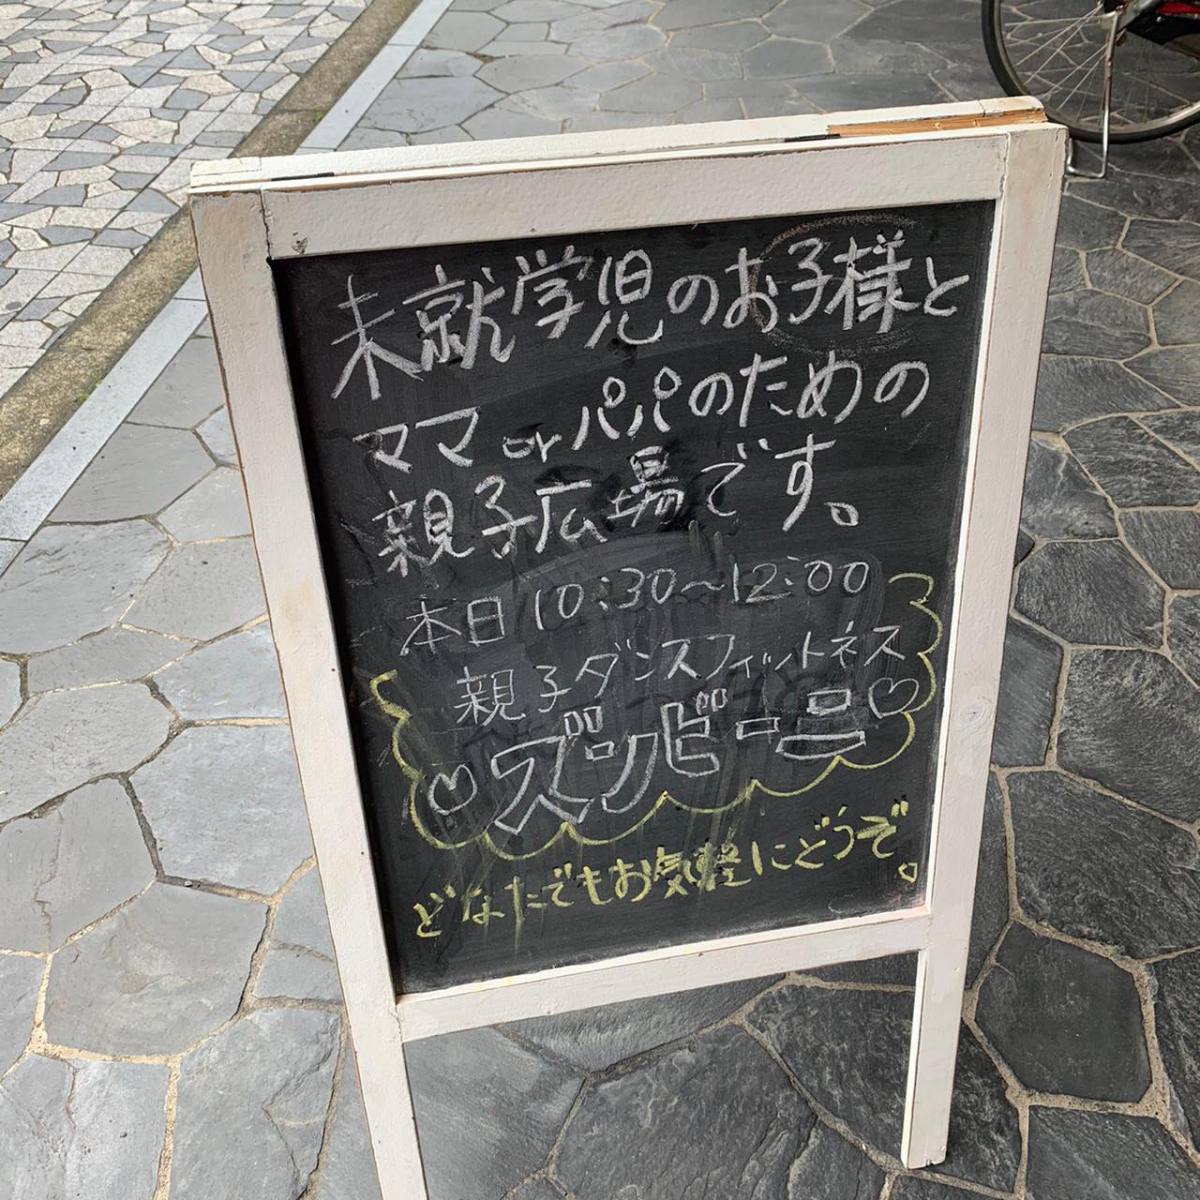 未就学児のお子様と
ママorパパのための
親子広場です。
本日10:30〜12:00
親子ダンスフィットネス
♡ズンビーニ♡
どなたでもお気軽にどうぞ。